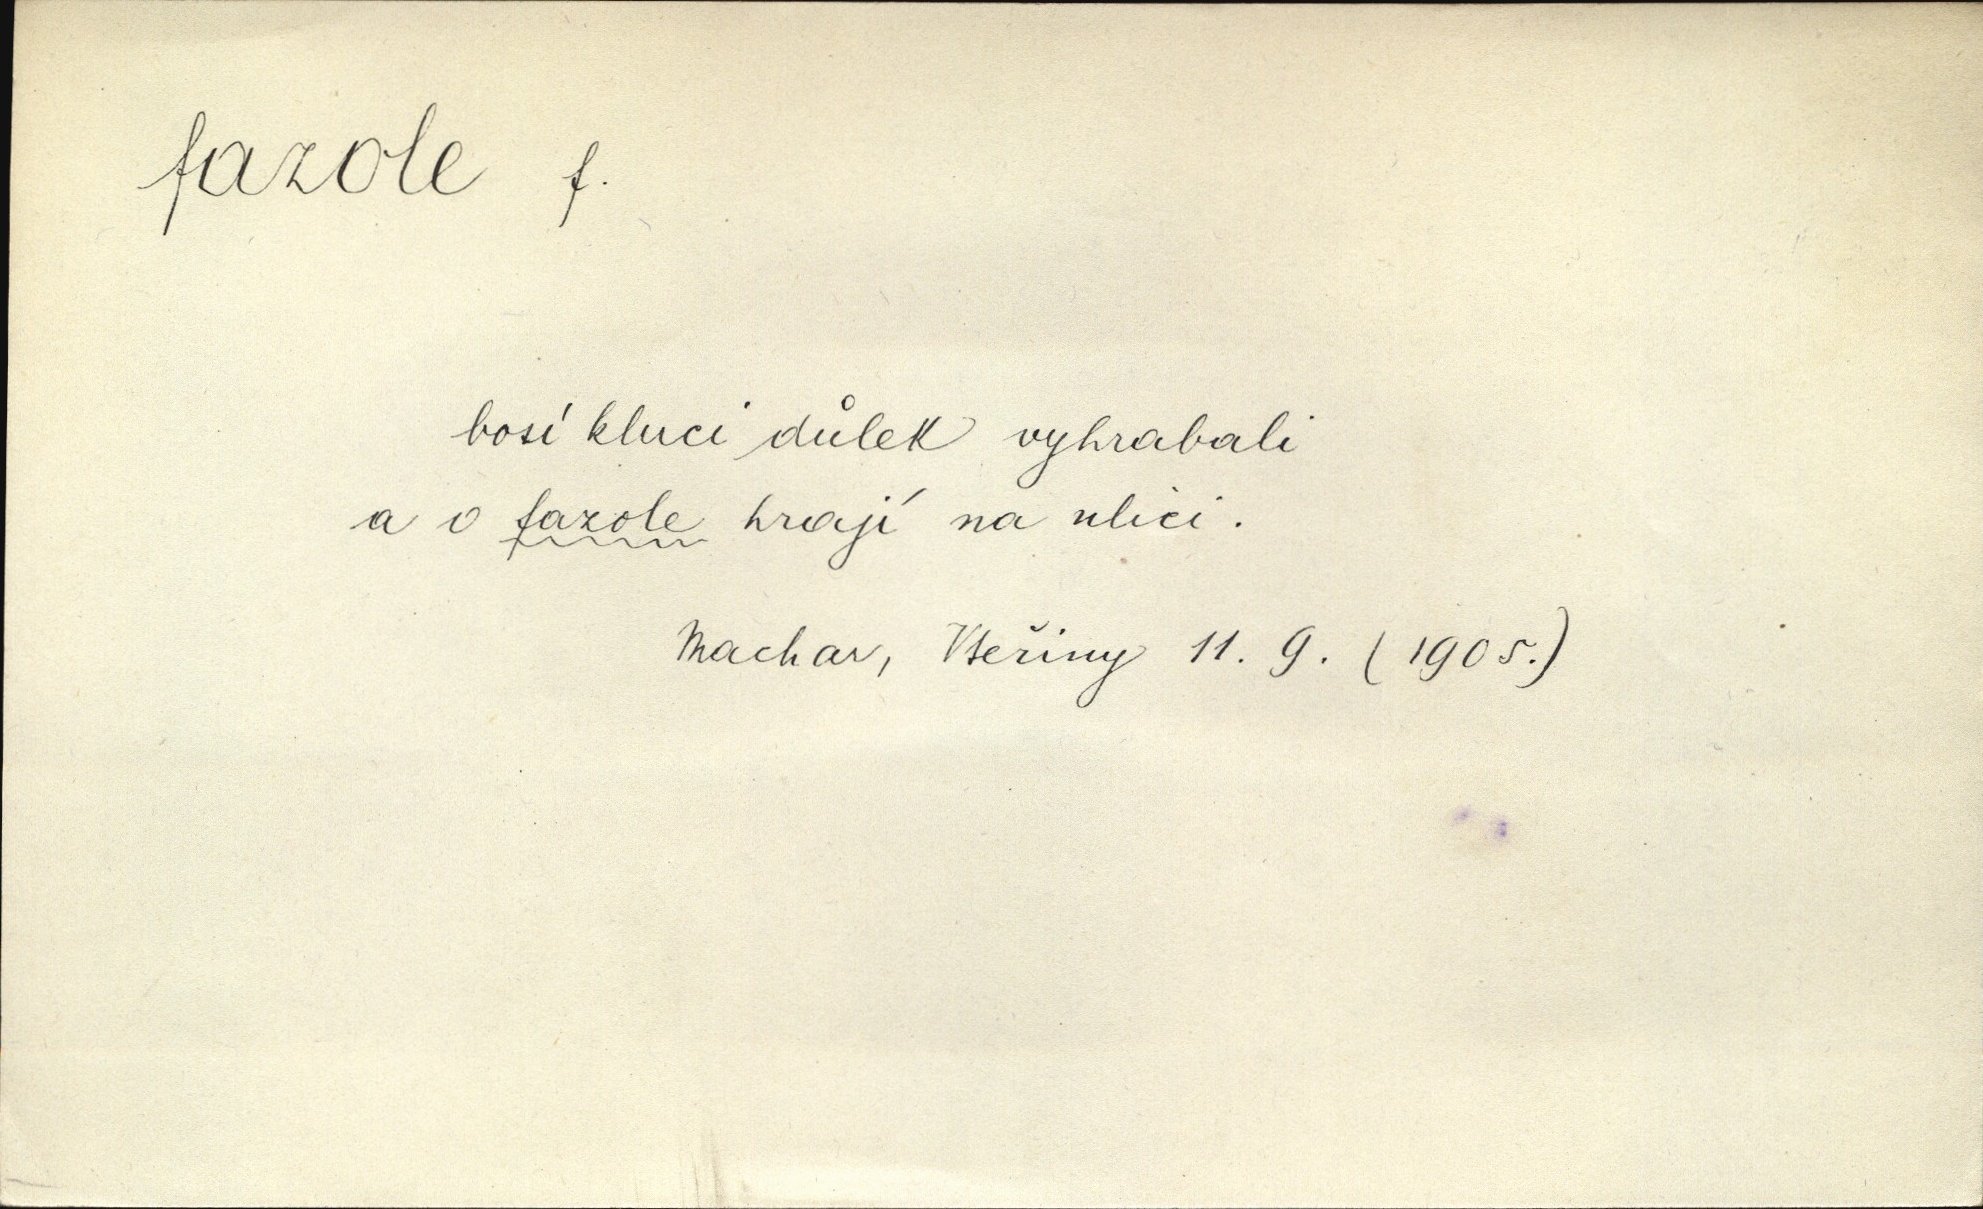 fazole f.
bosí kluci důlek vyhrabali
a o fazole hrají na ulici.
Machar, Vteřiny 11. 9. (1905.)